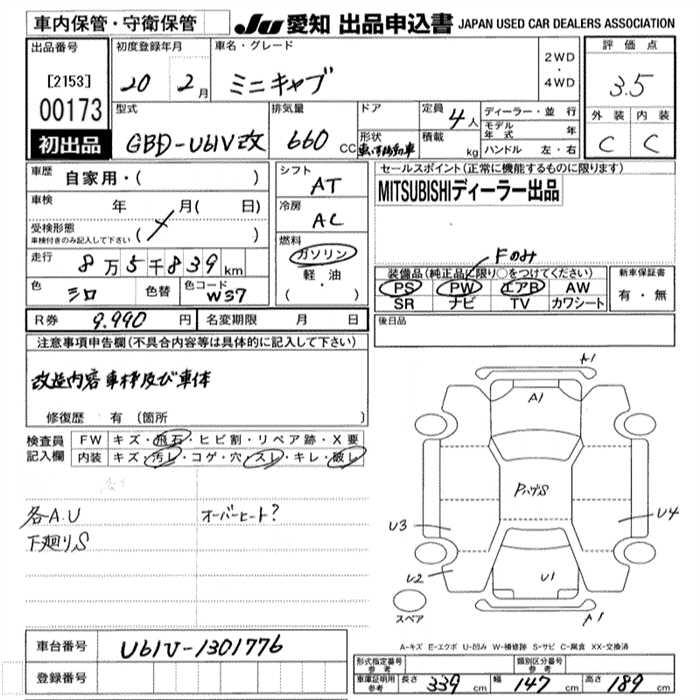 車内保管・守衛保管
JU 愛知 出品申込書 JAPAN USED CAR DEALERS ASSOCIATION
出品番号 初度登録年月 車名・グレード 評価点
[2153] 20 2月 ミニキャブ 2WD・4WD 3.5
00173 型式 排気量 ドア 定員 4人 ディーラー・並行 外装 内装
初出品 GBD-U61V改 660cc 形状 積載 kg モデル年式 年 C C
ハンドル 左・右
車歴 自家用・( ) シフト AT セールスポイント(正常に機能するものに限ります)
車検 年 月( 日) 冷房 AC MITSUBISHIディーラー出品
受検形態 車検付きのみ記入して下さい ( ) 燃料 ガソリン・軽油・( )
Fのみ
走行 8万5千839km 装備品(純正品に限り○をつけてください) 新車保証書
色 シロ 色替 色コード W37 PS PW エアB AW 有・無
SR ナビ TV カワシート
R券 9.990円 名変期限 月 日 後日品
注意事項申告欄(不具合内容等は具体的に記入して下さい)
改造内容 車枠及び車体
修復歴 有 (箇所 )
検査員記入欄 FW キズ・飛石・ヒビ割・リペア跡・X要
内装 キズ・汚レ・コゲ・穴・スレ・キレ・破レ
各A.U オーバーヒート?
下廻りS
A1
A1
PハゲS
U3 U4
U2 U1
スペア A1
A-キズ E-エクボ U-凹み W-補修跡 S-サビ C-腐食 XX-交換済
車台番号 U61V-1301776
登録番号
形式指定番号 参考 類別区分番号 参考
車庫証明用 参考 長さ 339cm 幅 147cm 高さ 189cm